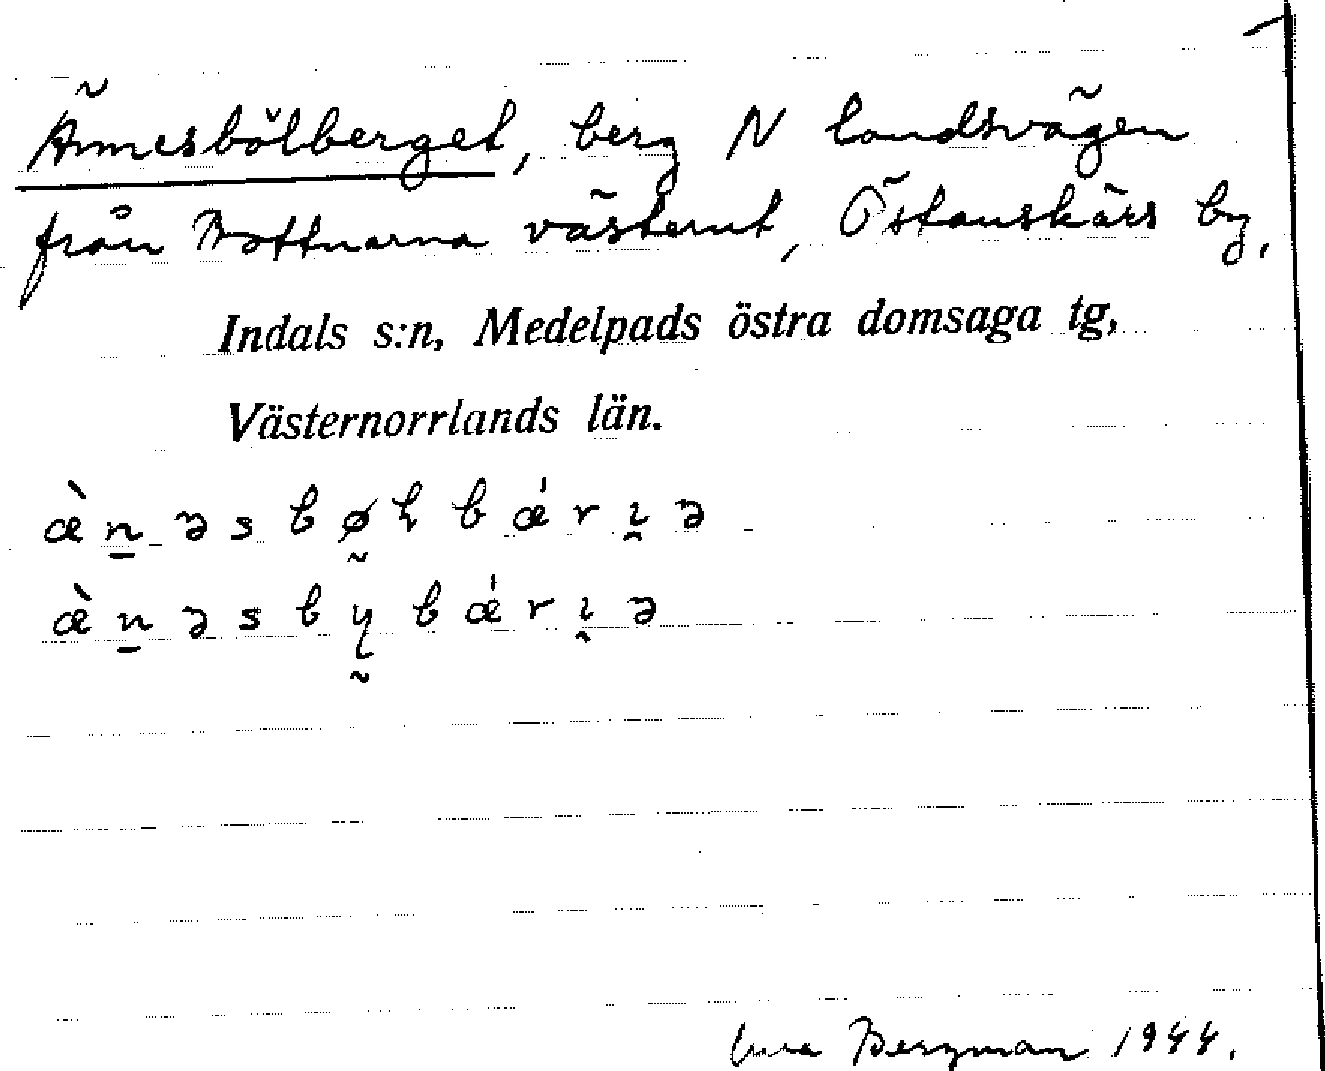 Ännesbölberget, berg N landsvägen
från Bottnarna västerut, Östanskärs by,
Indals s:n, Medelpads östra domsaga tg,
Västernorrlands län.
æ̀n̲əsbø̰ɫbǽrı̯ə
æ̀n̲əsby̰bǽrı̯ə
Bergman 1944.